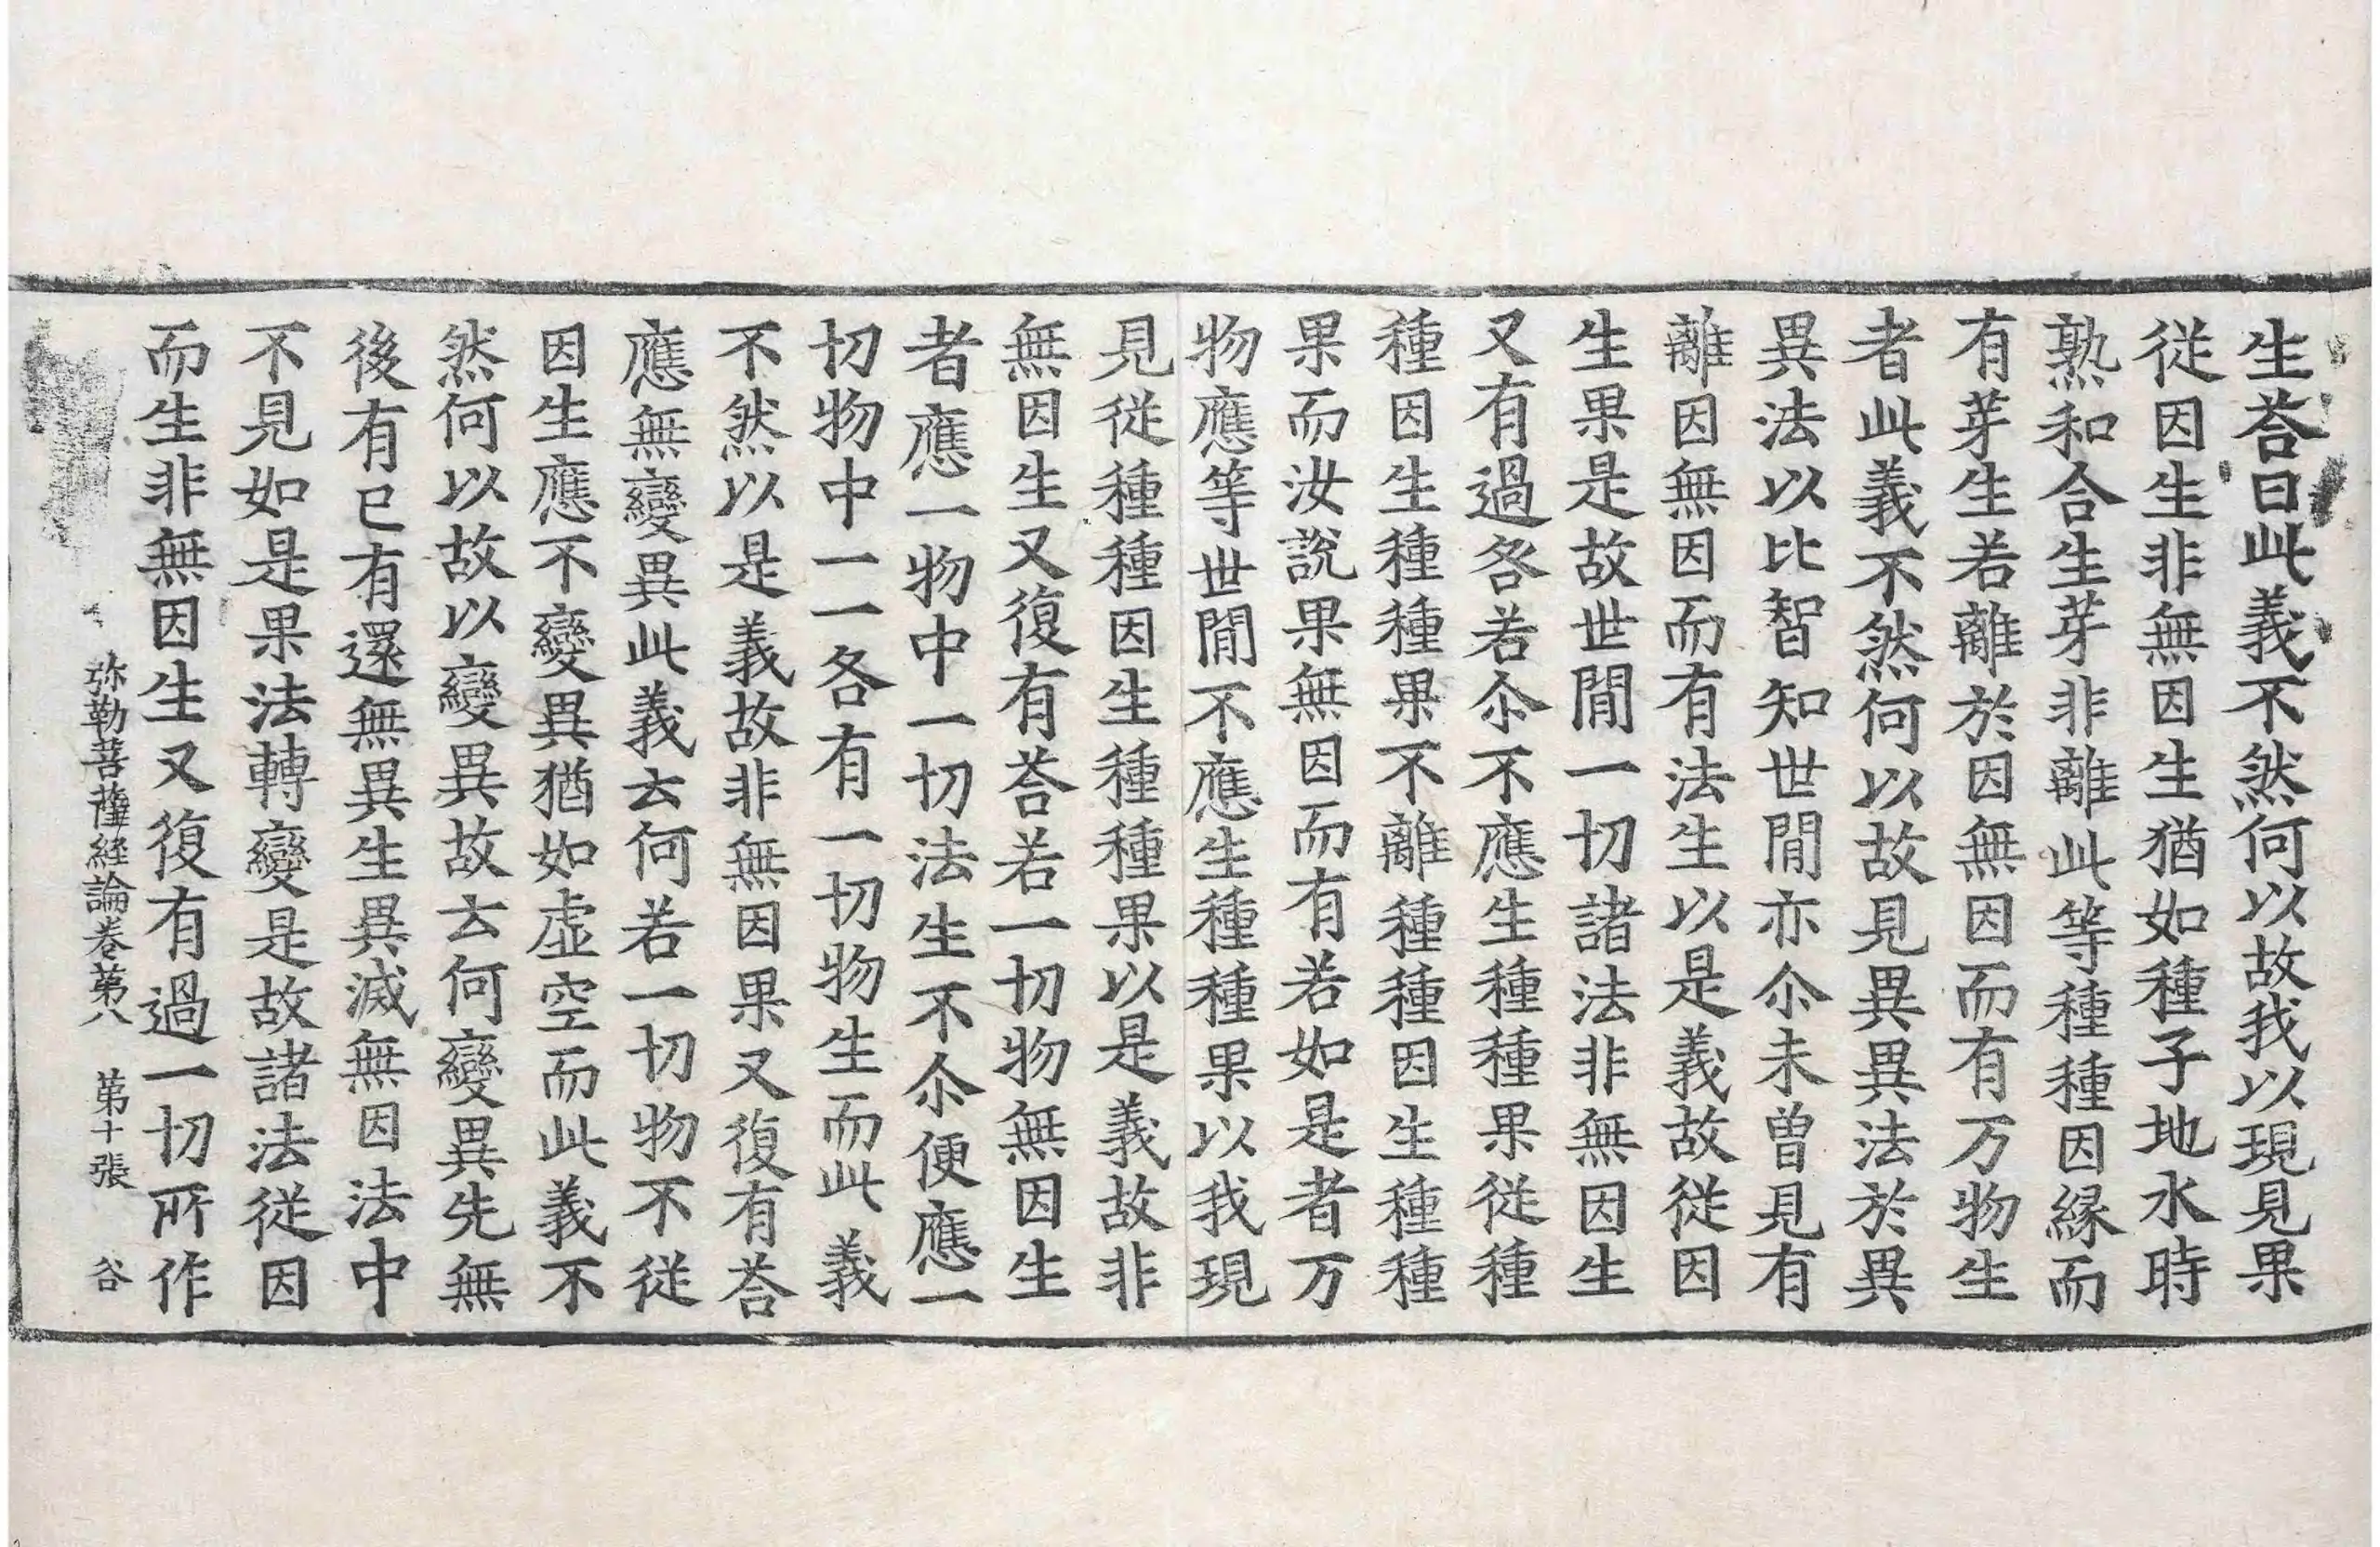 生荅曰此義不然何以故我以現見果
從因生非無因生猶如種子地水時
熟和合生芽非離此等種種因緣而
有芽生若離於因無因而有万物生
者此義不然何以故見異異法於異
異法以比智知世間亦尒未曽見有
離因無因而有法生以是義故從因
生果是故世間一切諸法非無因生
又有過咎若尒不應生種種果從種
種因生種種果不離種種因生種種
果而汝說果無因而有若如是者万
物應等世間不應生種種果以我現
見從種種因生種種果以是義故非
無因生又復有荅若一切物無因生
者應一物中一切法生不尒便應一
切物中一一各有一切物生而此義
不然以是義故非無因果又復有荅
應無變異此義云何若一切物不從
因生應不變異猶如虛空而此義不
然何以故以變異故云何變異先無
後有已有還無異生異滅無因法中
不見如是果法轉變是故諸法從因
而生非無因生又復有過一切所作
弥勒菩薩経論卷第八　第十張　谷